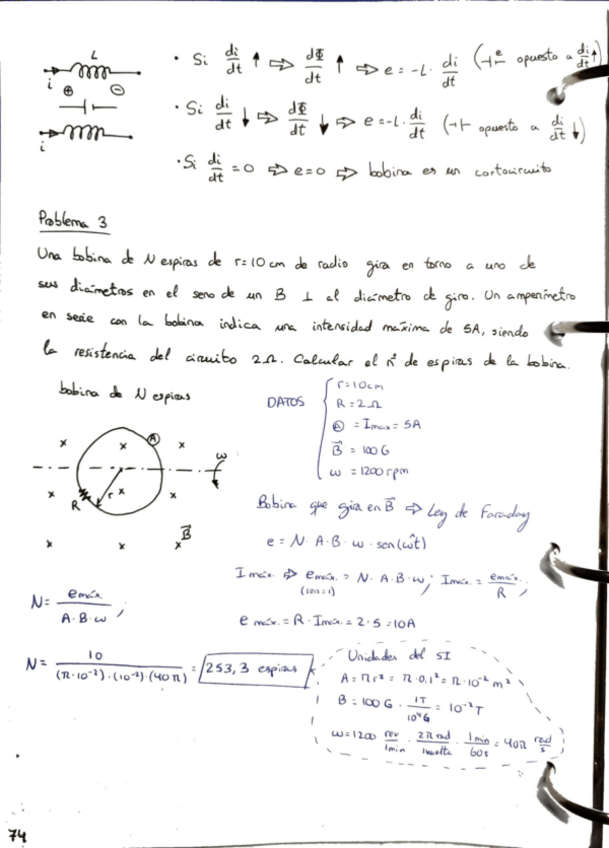 L
i
⊕ ⊖
i
· Si di/dt ↑ ⇨ dΦ/dt ↑ ⇨ e = -L · di/dt (⊣⊢ e opuesto a di/dt ↑)
· Si di/dt ↓ ⇨ dΦ/dt ↓ ⇨ e = -L · di/dt (⊣⊢ opuesto a di/dt ↓)
· Si di/dt = 0 ⇨ e = 0 ⇨ bobina es un cortocircuito
Problema 3
Una bobina de N espiras de r = 10 cm de radio gira en torno a uno de
sus diámetros en el seno de un B ⊥ al diámetro de giro. Un amperímetro
en serie con la bobina indica una intensidad máxima de 5A, siendo
la resistencia del circuito 2Ω. Calcular el nº de espiras de la bobina.
bobina de N espiras
A
ω
R
r
B
DATOS
r = 10 cm
R = 2Ω
Ⓐ = Imax = 5A
B = 100 G
ω = 1200 rpm
Bobina que gira en B ⇨ Ley de Faraday
e = N · A · B · ω · sen(ωt)
I máx. ⇨ e máx. = N · A · B · ω; I máx. = e máx. / R;
(sen = 1)
e máx. = R · I máx. = 2 · 5 = 10A
N = e máx. / A · B · ω;
N = 10 / (π·10⁻²) · (10⁻²) · (40π) = 253,3 espiras
Unidades del SI
A = πr² = π · 0.1² = π · 10⁻² m²
B = 100 G · 1T / 10⁴G = 10⁻² T
ω = 1200 rev/1min · 2π rad/1vuelta · 1min/60s = 40π rad/s
74